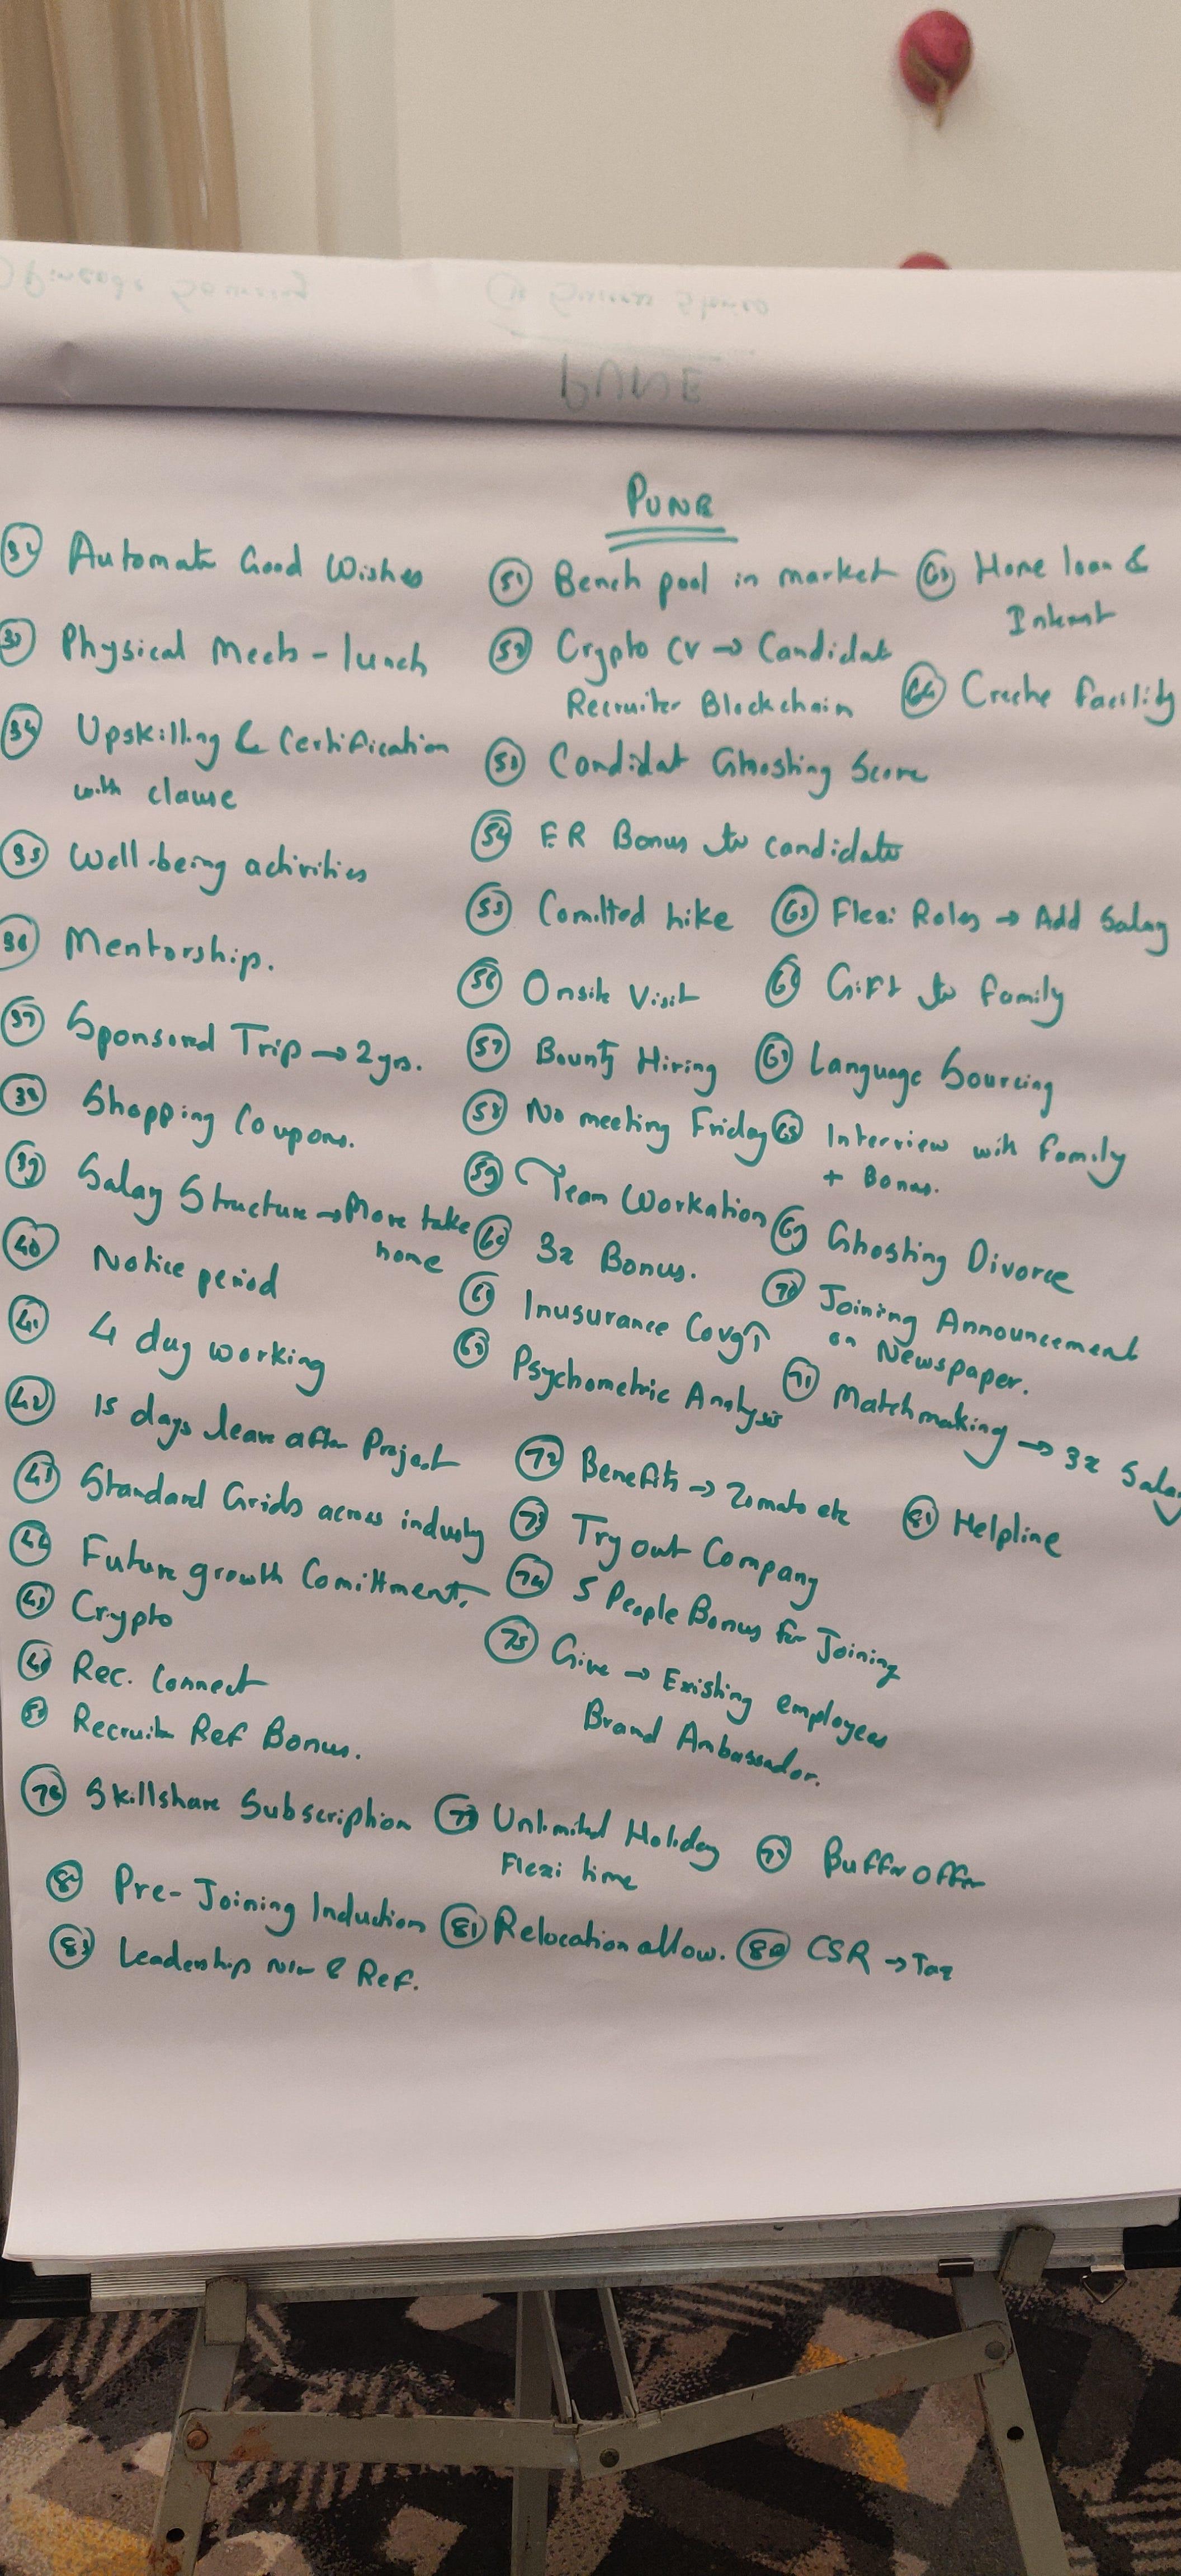 PUNE
32 Automate Good Wishes
33 Physical Meets - lunch
34 Upskilling & Certification
with clause
35 Well-being activities
36 Mentorship.
37 Sponsored Trip → 2 yrs.
38 Shopping Coupons.
39 Salary Structure → More take
home
40 Notice period
41 4 day working
42 15 days leave after Project
43 Standard Grids across industry
44 Future growth Comittment.
45 Crypto
Rec. Connect
50 Recruiter Ref Bonus.
51 Bench pool in market
52 Crypto CV → Candidate
Recruiter Blockchain
53 Candidate Ghosting Score
54 ER Bonus to candidate
55 Comitted hike
56 Onsite Visit
57 Bounty Hiring
58 No meeting Friday
59 Team Workation
60 3x Bonus.
61 Inusurance Covg↑
62 Psychometric Analysis
63 Home loan &
Interest
64 Creche facility
65 Flexi Roles → Add Salary
66 Gift to family
67 Language Sourcing
68 Interview with family
+ Bonus.
69 Ghosting Divorce
70 Joining Announcement
on Newspaper.
71 Matchmaking → 3x Salary
72 Benefits → Zomato etc
73 Try out Company
74 5 People Bonus for Joining
75 Give → Existing employees
Brand Ambassador.
81 Helpline
76 Skillshare Subscription
77 Unlimited Holiday
Flexi time
Buffer offer
Pre-Joining Induction
81 Relocation allow.
CSR → Tax
83 Leadership & Ref.